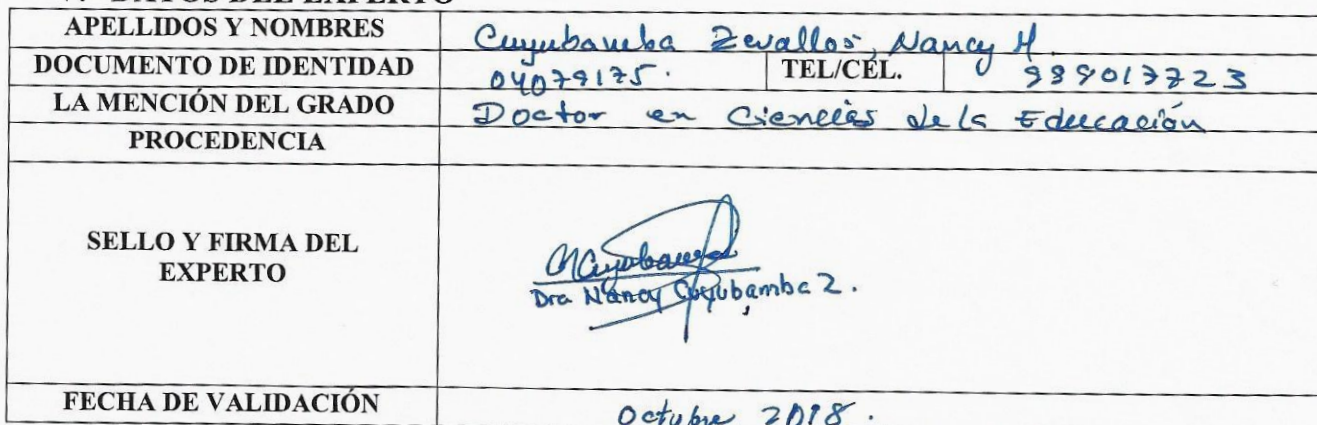 DATOS DEL EXPERTO
APELLIDOS Y NOMBRES Cuyubamba Zevallos, Nancy M.
DOCUMENTO DE IDENTIDAD 04079175. TEL/CÉL.
LA MENCIÓN DEL GRADO Doctor en Ciencias de la Educación
PROCEDENCIA
SELLO Y FIRMA DEL
EXPERTO
Dra Nancy Cuyubamba Z.
FECHA DE VALIDACIÓN Octubre 2018.